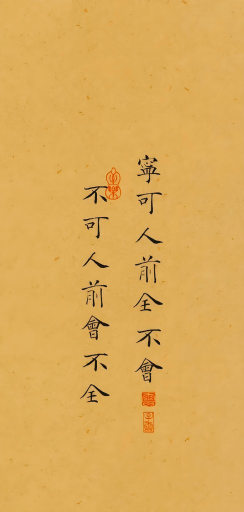 寧可人前全不會
不可人前會不全